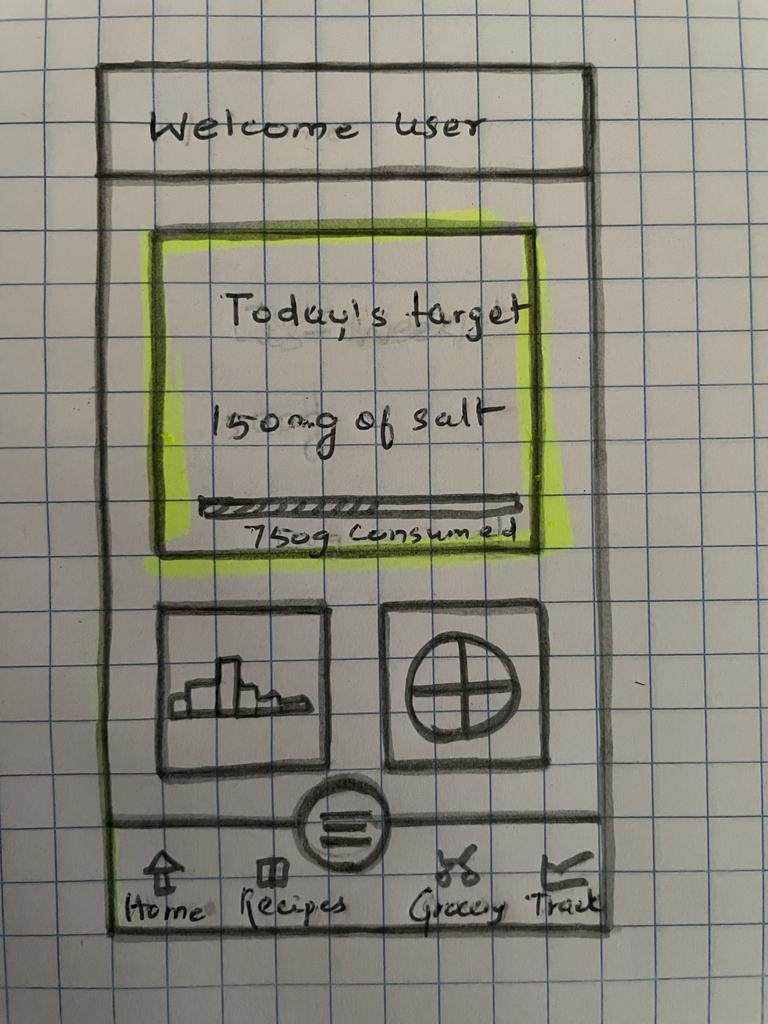 Welcome user
Today's target
150mg of salt
750g consumed
Home Recipes Grocery Track